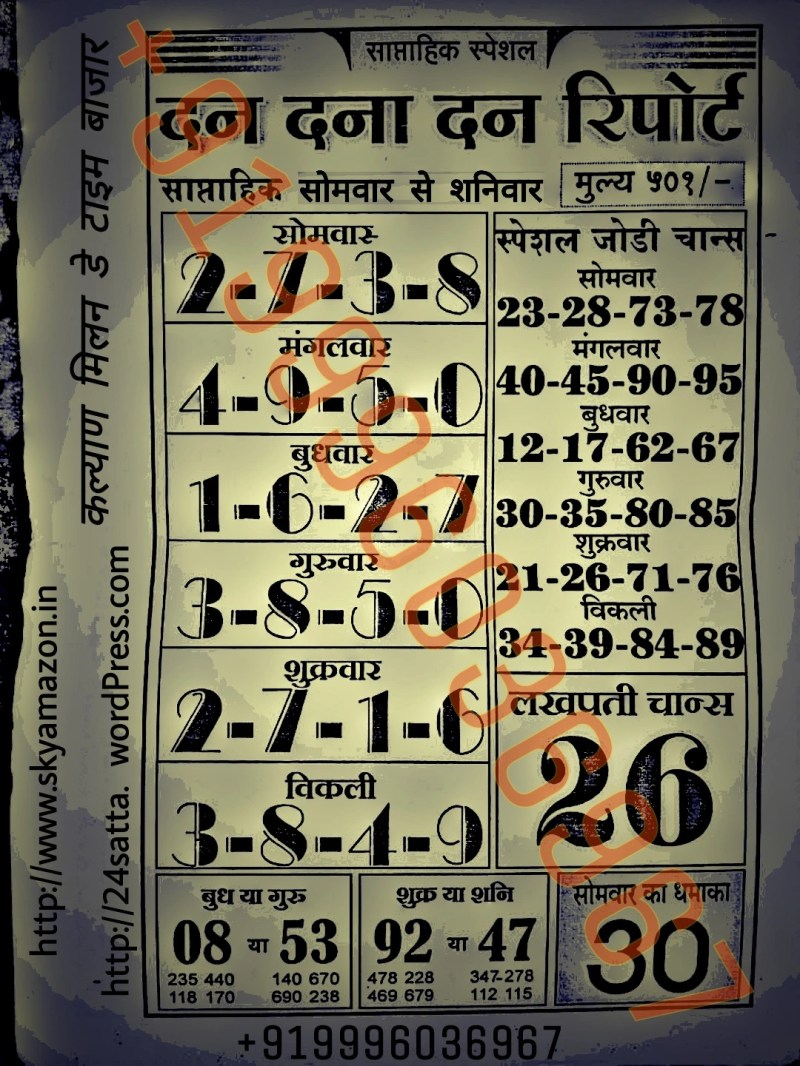 साप्ताहिक स्पेशल
दन दना दन रिपोर्ट
साप्ताहिक सोमवार से शनिवार
मुल्य ५०१/-
सोमवार
2-7-3-8
मंगलवार
4-9-5-0
बुधवार
1-6-2-7
गुरुवार
3-8-5-0
शुक्रवार
2-7-1-6
विकली
3-8-4-9
स्पेशल जोडी चान्स
सोमवार
23-28-73-78
मंगलवार
40-45-90-95
बुधवार
12-17-62-67
गुरुवार
30-35-80-85
शुक्रवार
21-26-71-76
विकली
34-39-84-89
लखपती चान्स
26
बुध या गुरु
08 या 53
235 440 140 670
118 170 690 238
शुक्र या शनि
92 या 47
478 228 347-278
469 679 112 115
सोमवार का धमाका
30
+919996036967
कल्याण मिलन डे टाइम बाजार
http://www.skyamazon.in
http://24satta. wordPress.com
+919996036967